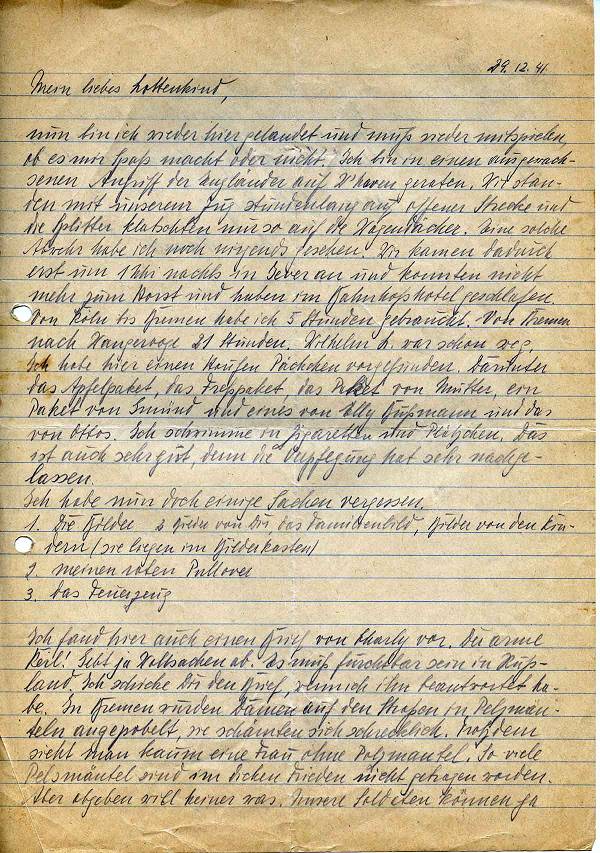 29.12.41
Mein liebes Lottenkind,
nun bin ich wieder hier gelandet und muß wieder mitspielen
ob es mir Spaß macht oder nicht. Ich bin in einen ausgewach-
senen Angriff der Engländer auf W'haven geraten. Wir stan-
den mit unserem Zug stundenlang auf offener Strecke und
die Splitter klatschten nur so auf die Wagendächer. Eine solche
Abwehr habe ich noch nirgends gesehen. Wir kamen dadurch
erst um 1 Uhr nachts in Jever an und konnten nicht
mehr zum Horst und haben im Bahnhofshotel geschlafen.
Von Köln bis Bremen habe ich 5 Stunden gebraucht. Von Bremen
nach Wangerooge 21 Stunden. Wilhelm L. war schon weg.
Ich habe hier einen Haufen Päckchen vorgefunden. Darunter
das Apfelpaket, das Fresspaket, das Paket von Mutter, ein
Paket von Gmünd und eines von Elly Bußmann und das
von Ottos. Ich schwimme in Zigaretten und Plätzchen. Das
ist auch sehr gut, denn die Verpflegung hat sehr nachge-
lassen.
Ich habe nun doch einige Sachen vergessen.
1. Die Bilder 2 Bilder von Dir das Bild, Bilder von den Kin-
dern (sie liegen im Bilderkasten)
2. meinen roten Pullover
3. das Feuerzeug
Ich fand hier auch einen Brief von Charly vor. Der arme
Kerl! Gebt ja Wollsachen ab. Es muß furchtbar sein in Ruß-
land. Ich schicke Dir den Brief, wenn ich ihn beantwortet ha-
be. In Bremen wurden Damen auf den Straßen in Pelzmän-
teln angepöbelt, sie schämten sich schrecklich. Trotzdem
sieht man kaum eine Frau ohne Pelzmantel. So viele
Pelzmäntel sind im dicken Frieden nicht getragen worden.
Aber abgeben will keiner was. Unsere Soldaten können ja